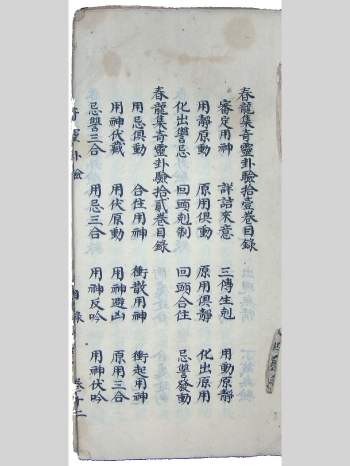 春龍集奇靈卦驗拾壹卷目錄
審定用神 詳詰來意 三傳生剋 用動原靜
用靜原動 原用俱動 原用俱靜 化出原用
化出讐忌 回頭剋制 回頭合住 忌讐發動
春龍集奇靈卦驗拾貳卷目錄
用忌俱動 合住用神 衝散用神 衝起用神
用神伏藏 用伏原動 用神避凶 原用三合
忌讐三合 用忌三合 用神反吟 用神伏吟
靈卦驗 目錄